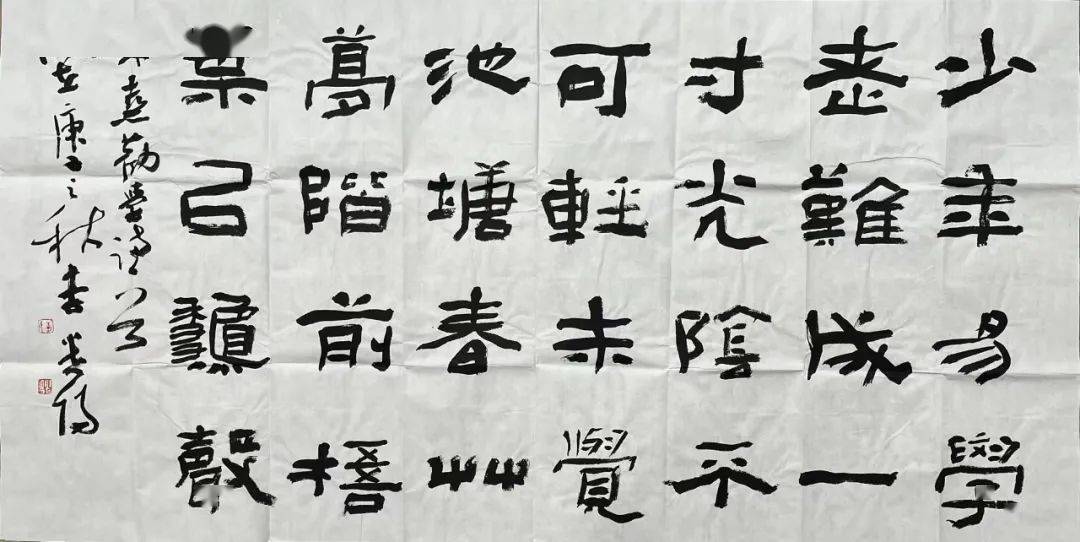 少年易學
老難成一
寸光陰不
可輕未覺
池塘春艸
夢階前梧
葉已龝聲
熹勸學詩
庚子之秋書